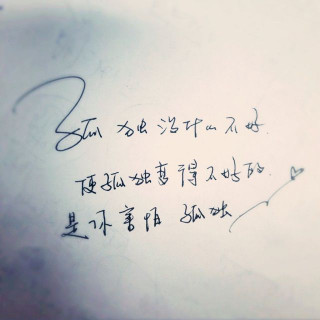 孤独没什么不好
使孤独变得不好的
是你害怕孤独